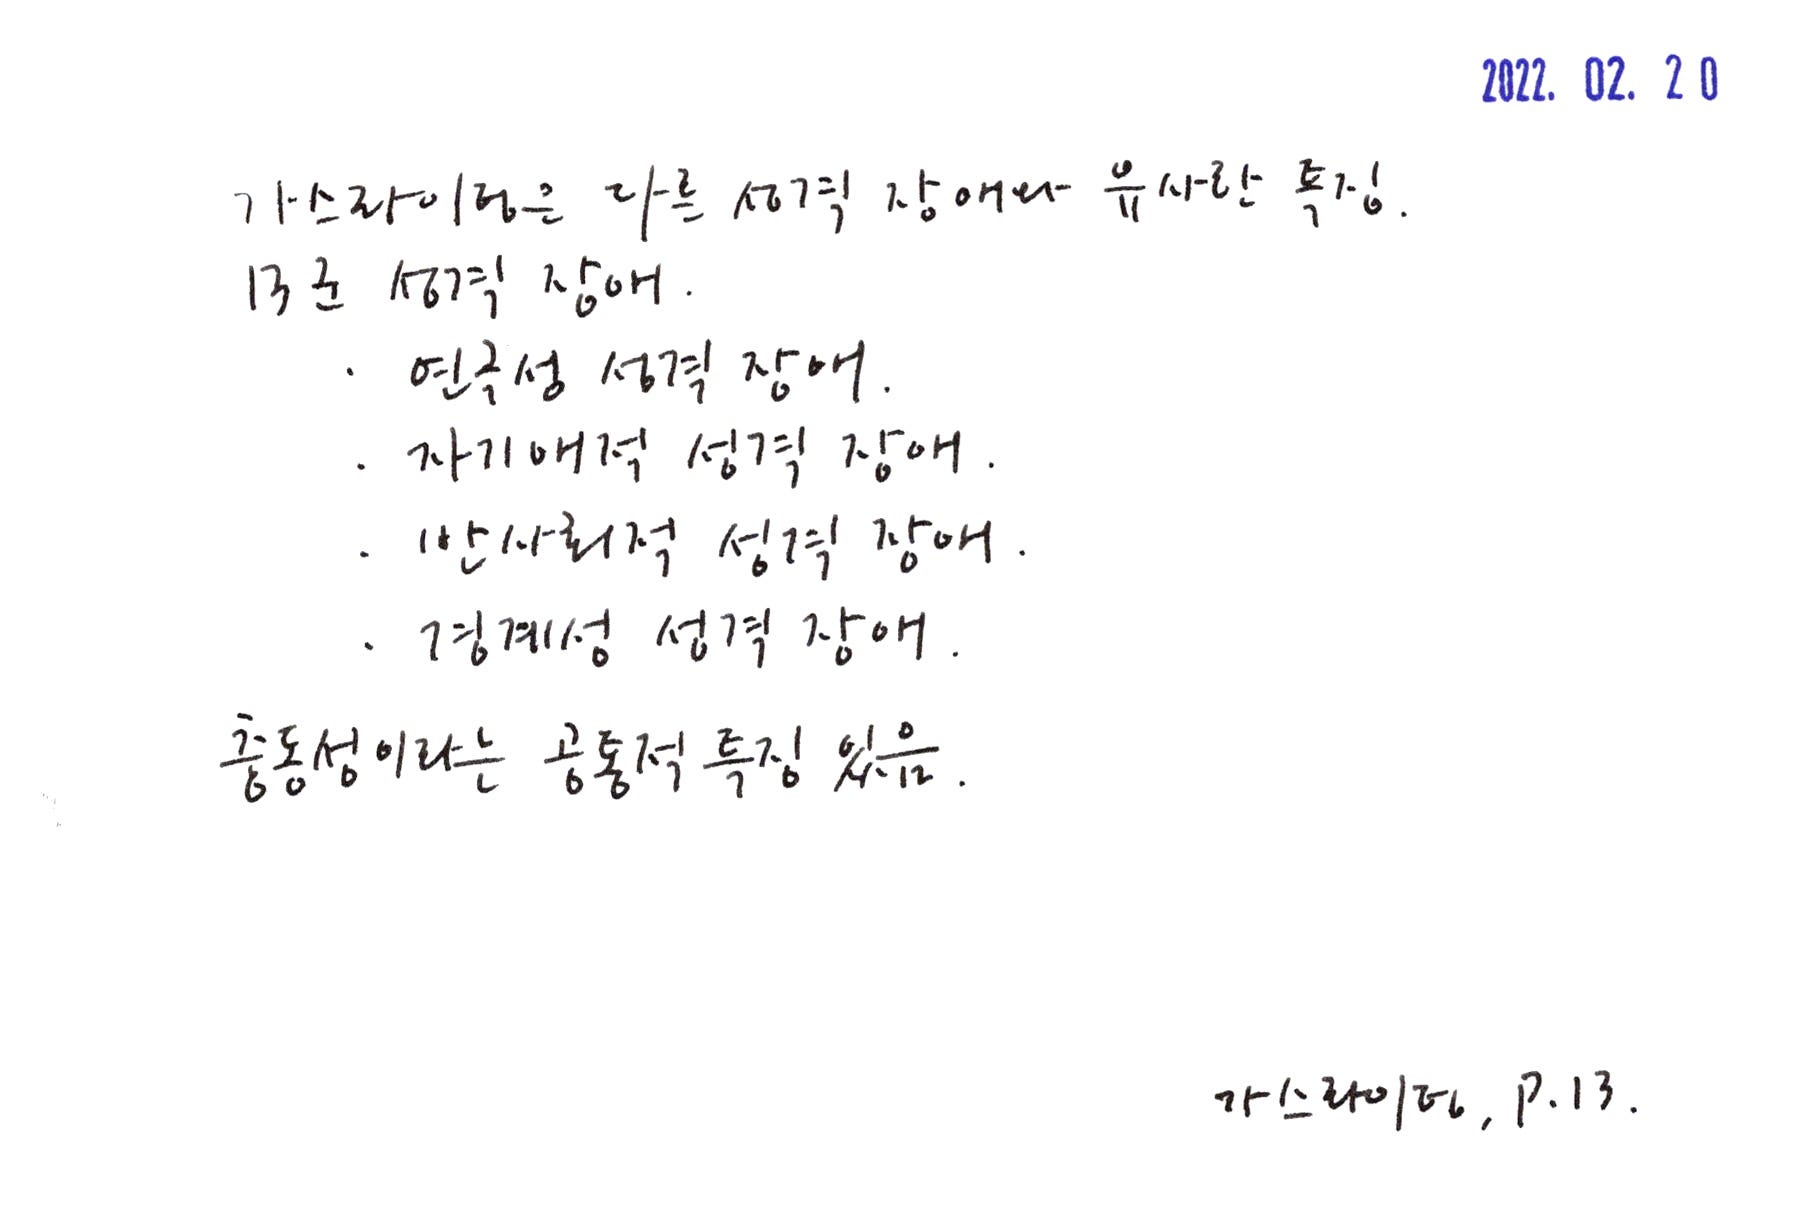 2022. 02. 20
가스라이팅은 다른 성격 장애와 유사한 특징.
B군 성격 장애.
· 연극성 성격 장애.
· 자기애적 성격 장애.
· 반사회적 성격 장애.
· 경계성 성격 장애.
충동성이라는 공통적 특징 있음.
가스라이팅, P.13.